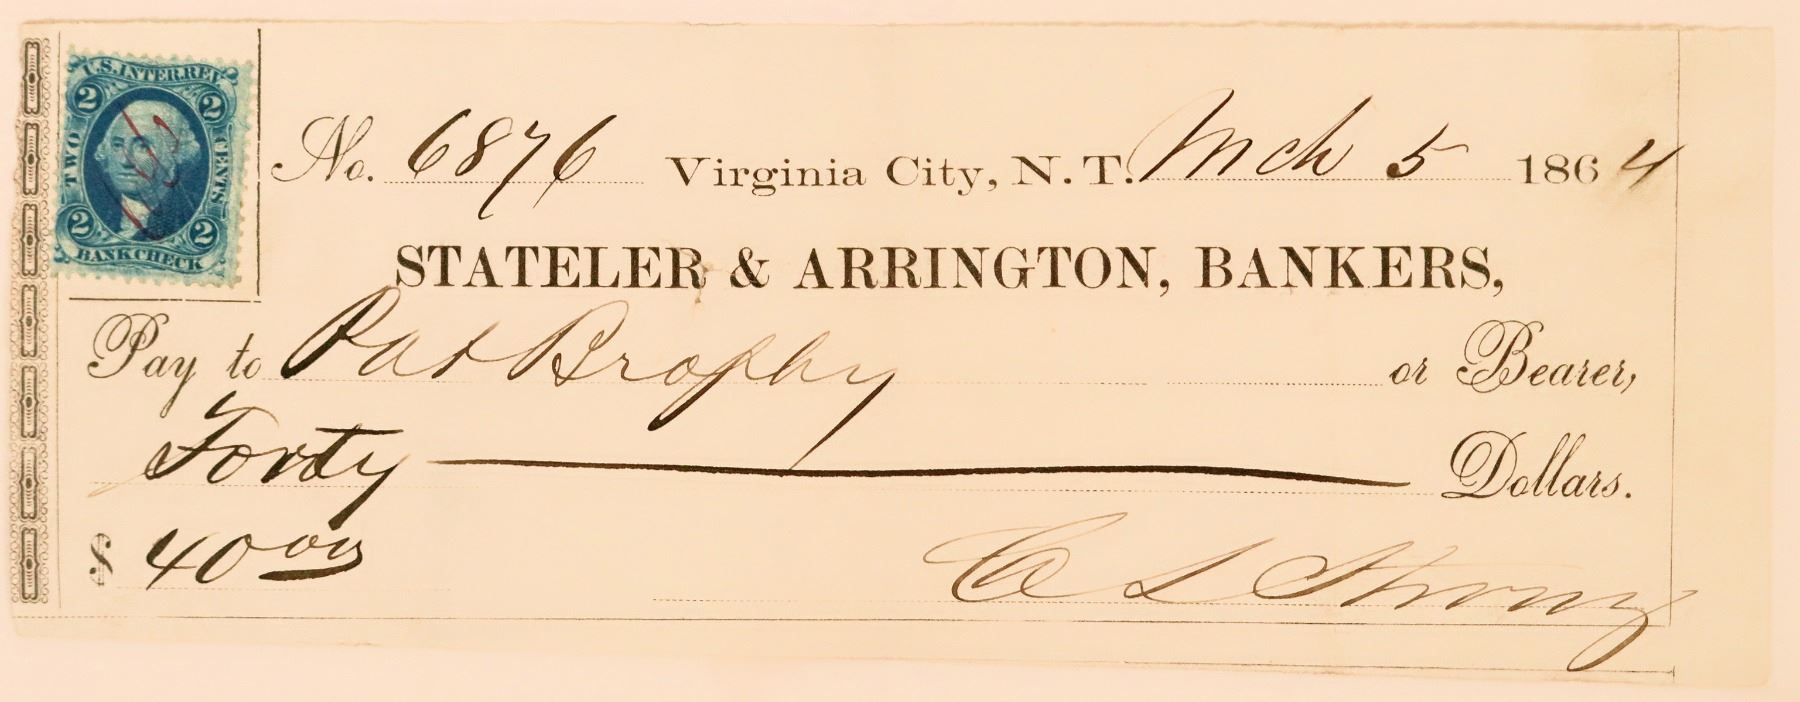 U.S. INTER. REV.
2 2
TWO CENTS
2 2
BANK CHECK
No. 6876 Virginia City, N.T. Mch 5 1864
STATELER & ARRINGTON, BANKERS,
Pay to Pat Brophy or Bearer,
Forty Dollars.
$ 40 00
C L Strong